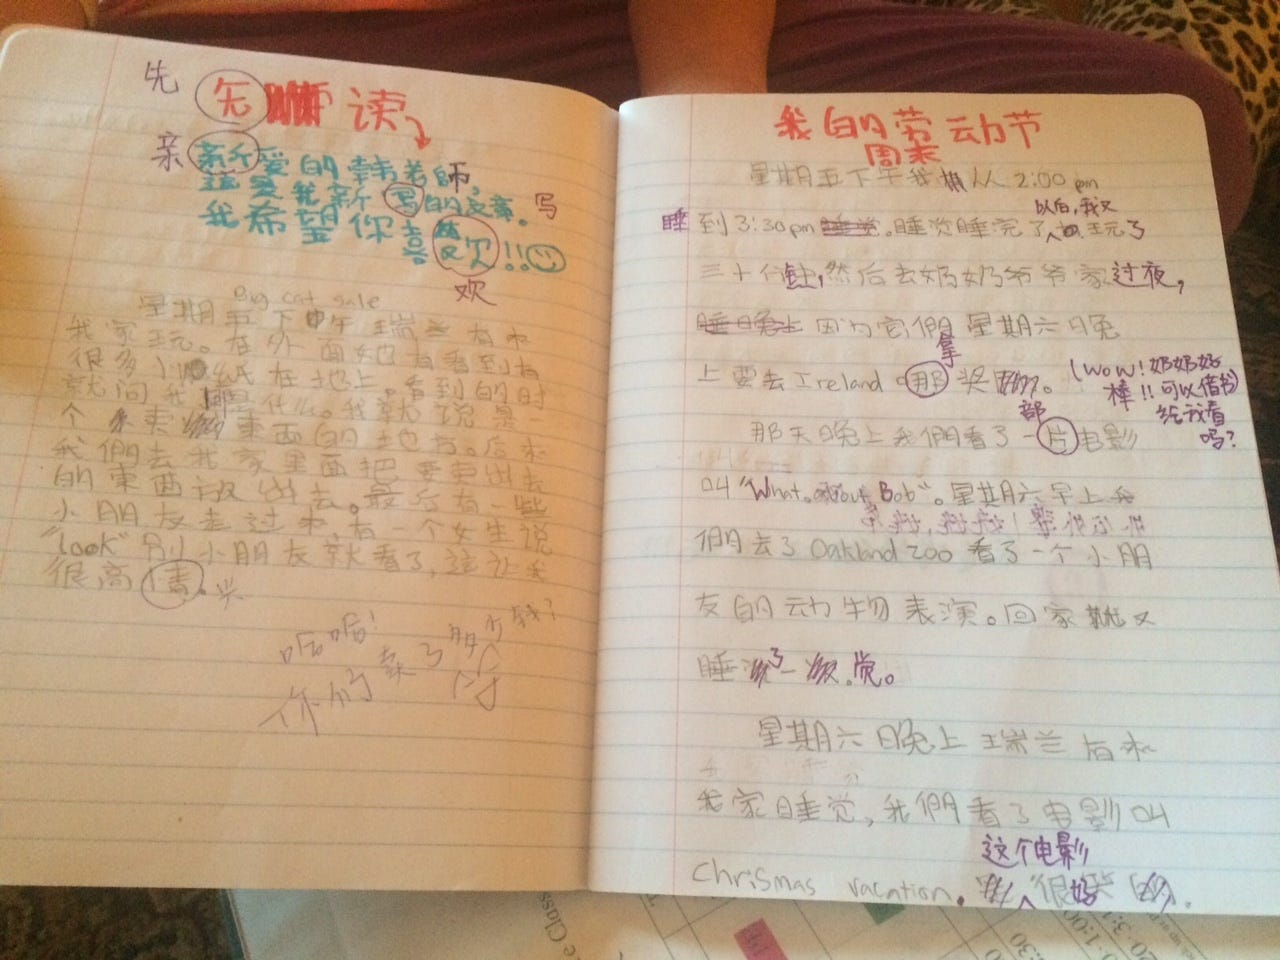 先
读
亲
爱的韩老师,
这是我新写的文章。 写
我希望你喜欢!!
欢
Big cat sale
星期五下午瑞兰有来
我家玩。在外面她有看到有
很多小纸在地上。看到的时
就问我是什么。我就说是一
个卖東西的地方。后来
我们去我家里面把要卖出去
的東西放出去。最后有一些
小朋友走过来,有一个女生说
"look"别小朋友就看了,这让我
很高情。兴
哈哈!
你们卖了多少钱?
我的劳动节
周末
星期五下午我从 2:00 pm
以后,我又
睡 到 3:30pm 睡觉。睡觉睡完了 玩了
三十分钟,然后去奶奶爷爷家过夜,
睡晚上 因为它們星期六晚
拿
上要去 Ireland 那奖。
(wow! 奶奶好
棒!!可以借书
给我看
吗?
部
那天晚上我們看了一片电影
叫 "What about Bob". 星期六早上我
們去了 Oakland zoo 看了一个小朋
友的动物表演。回家就又
睡了一觉。
星期六晚上瑞兰有来
我家睡觉,我們看了电影叫
这个电影
Chrismas vacation. 很好笑的.